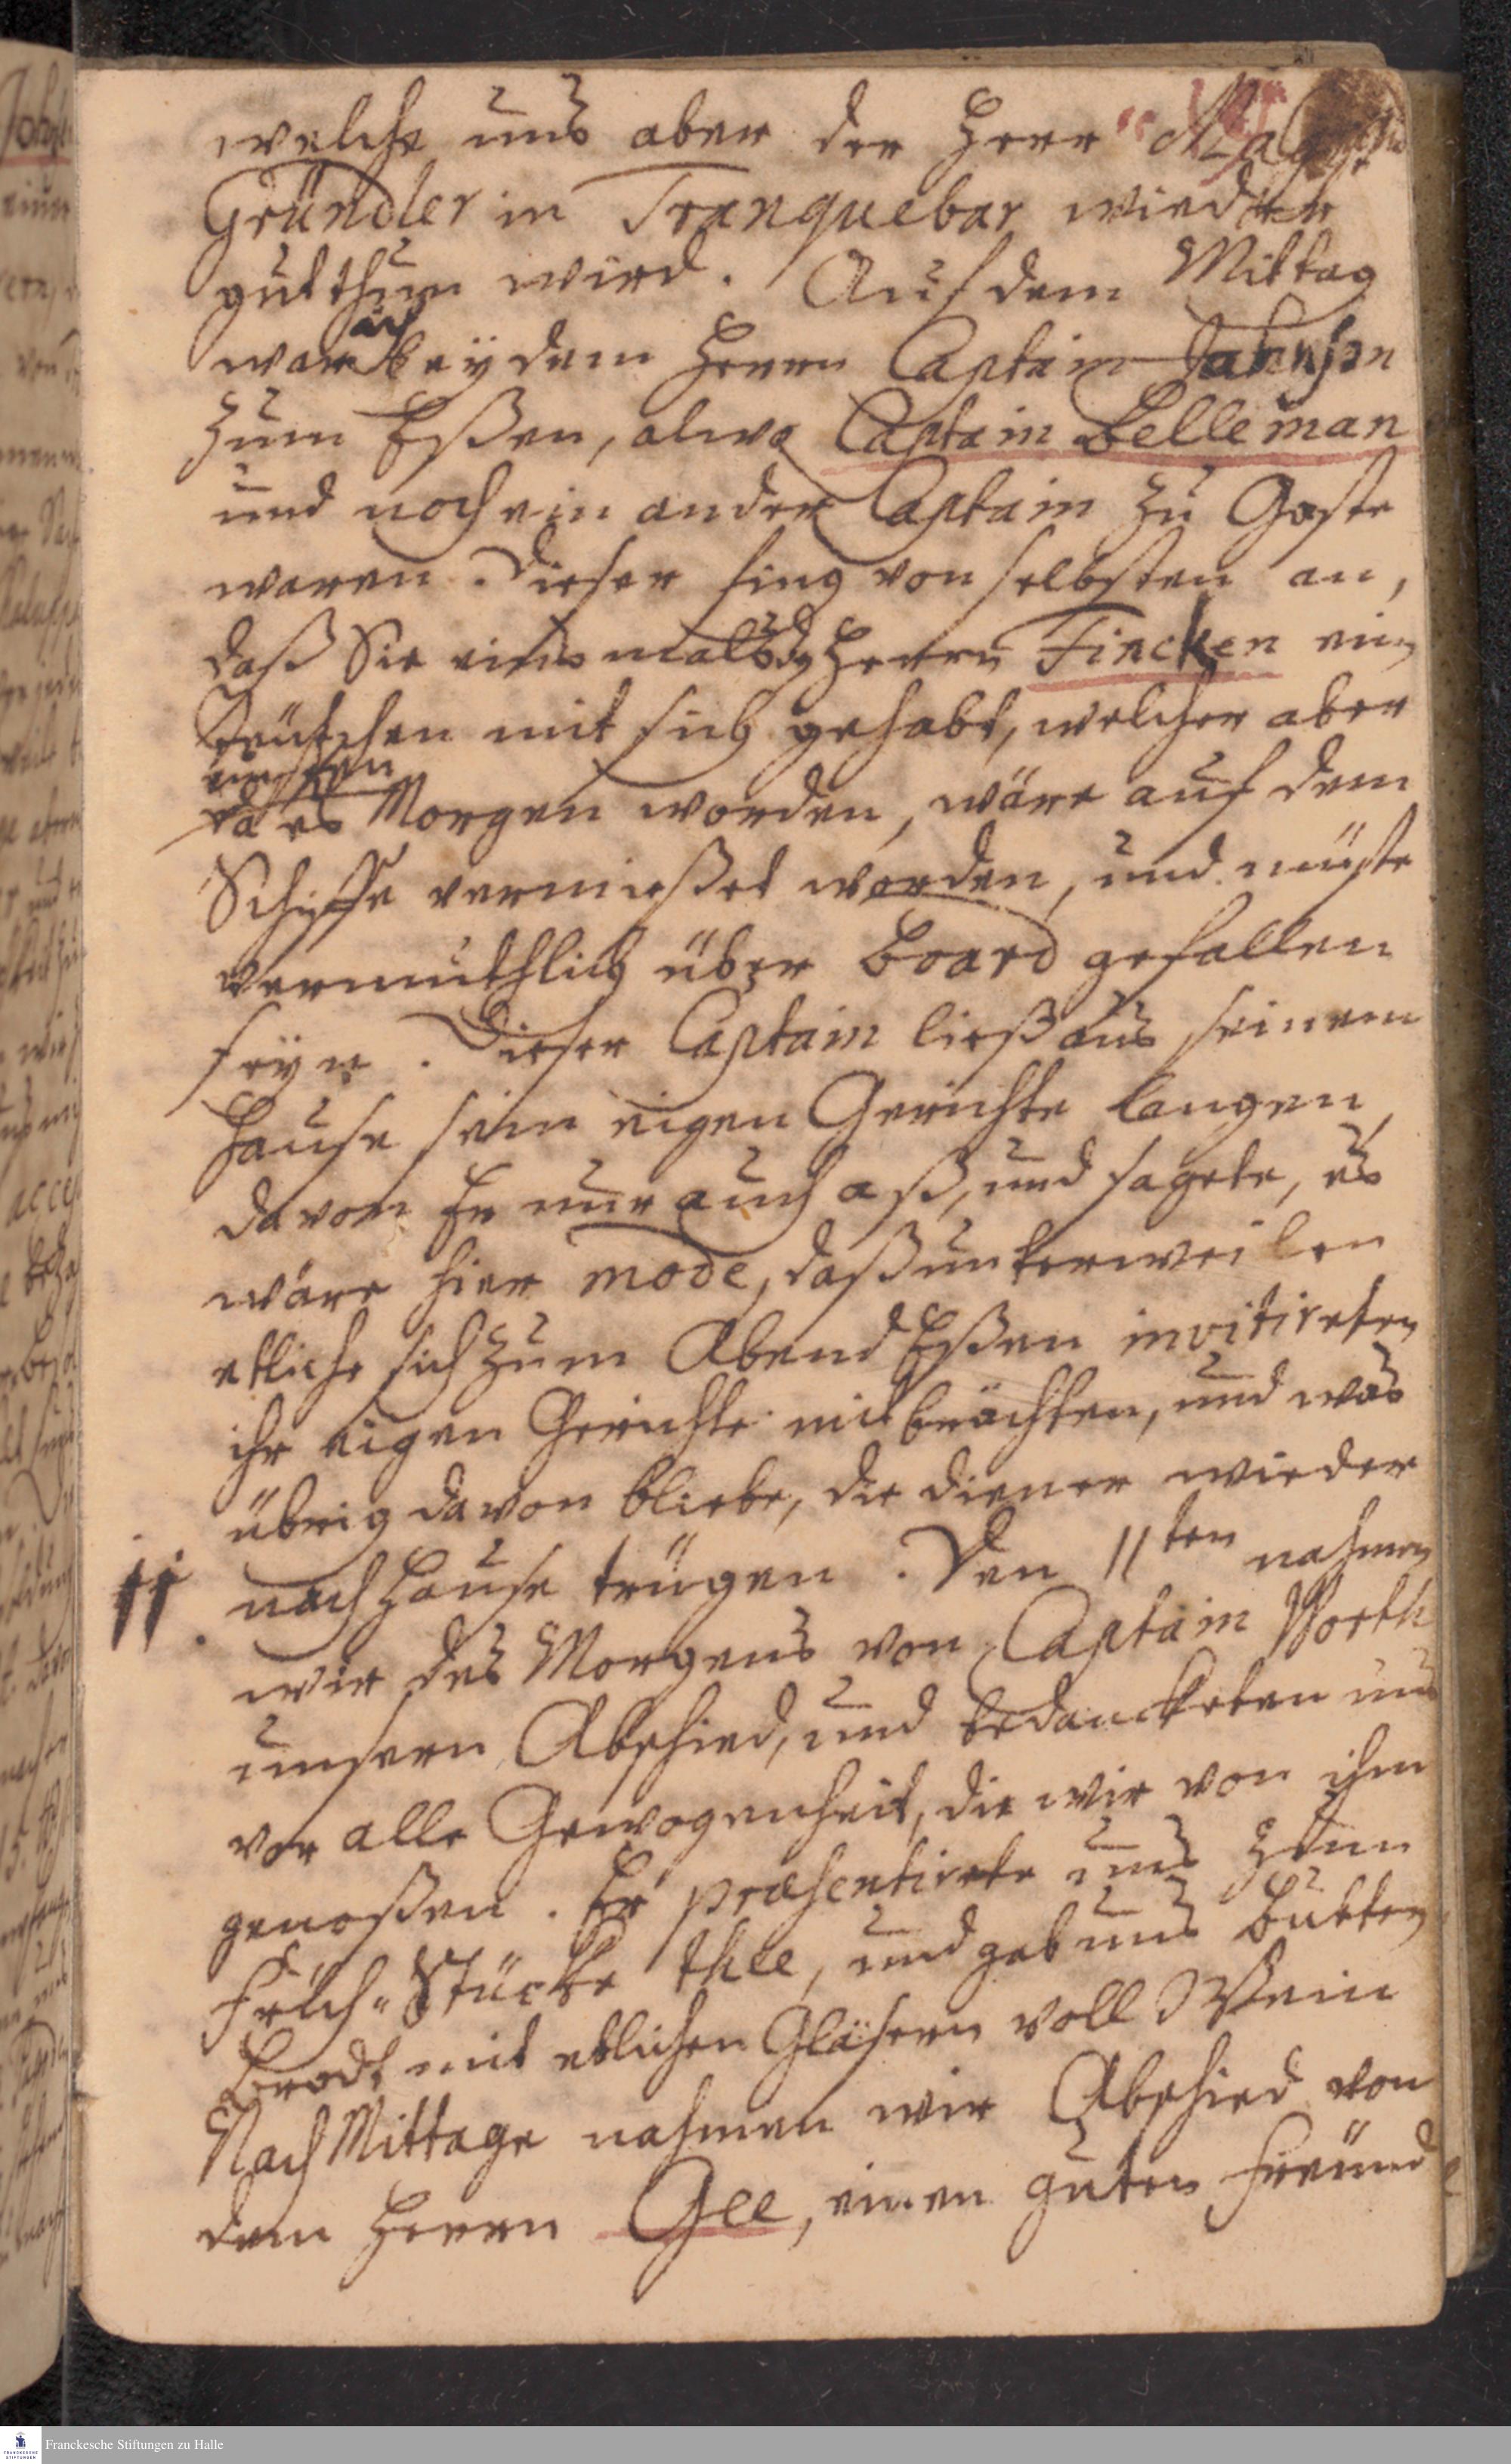 welche uns aber der Herr
Gründler in Tranquebar wieder
gutthun wird. Auf dem Mittag
war ich bey dem Herrn Captain Johnson
zum Eßen, alwo Captain Belleman
und noch ein ander Captain zu Gaste
waren. Dieser fing von selbsten an,
daß Sie eins mals Herrn Fincken ein
Teutschen mit sich gehabt, welcher aber
da es Morgen worden, wäre auf dem
Schiffe vermißet worden, und müste
vermuthlich über Board gefallen
seyn. Dieser Captain ließ aus seinem
Hause sein eigen Gerichte langen,
davon Er nur auch aß, und sagete, es
wäre hier mode, daß unterweilen
etliche sich zum Abend Eßen invitireten
ihr eigen Gerichte mitbrächten, und was
übrig davon bliebe, die diener wieder
11. nach Hause trügen. Den 11ten nahmen
wir des Morgens von Captain Worth
unsern Abschied, und bedancketen uns
vor alle Gewogenheit, die wir von ihm
genoßen. Er præsentirete uns zum
Früh-Stücke thee, und gab uns Butter
Brodt mit etlichen Gläsern voll Wein
Nach Mittage nahmen wir Abschied von
dem Herrn Gee, einen guten Freünd
Franckesche Stiftungen zu Halle